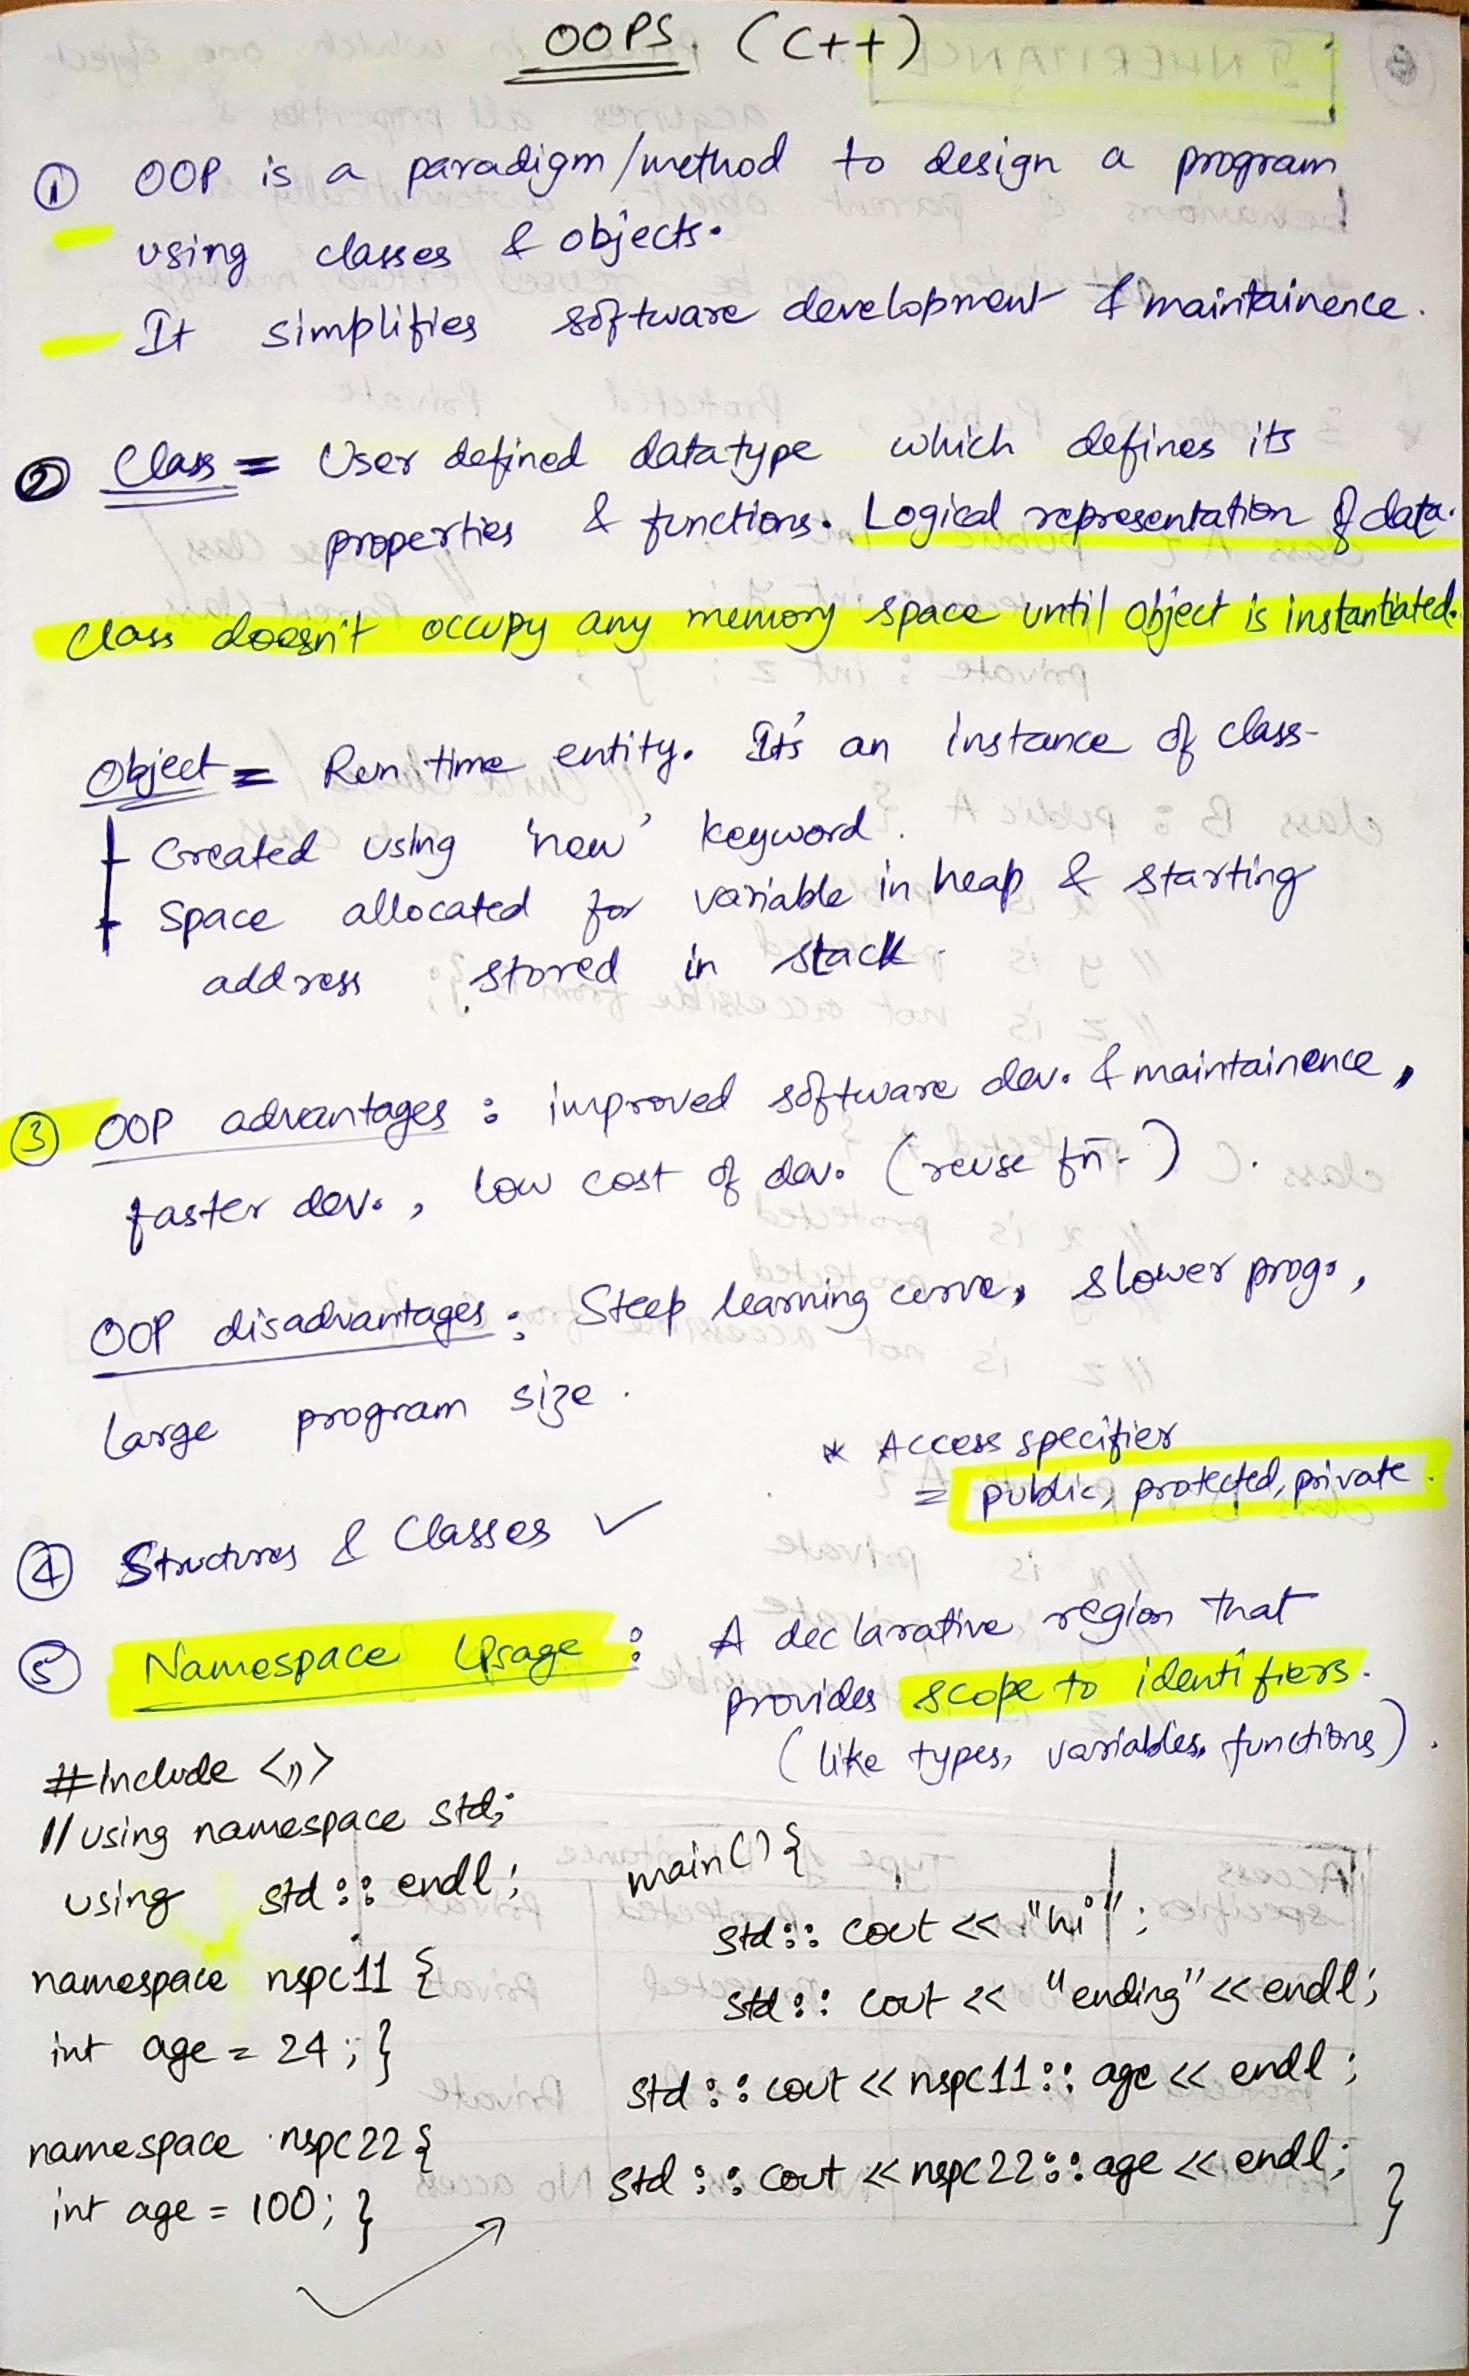 OOPS (C++)
① OOP is a paradigm/method to design a program
using classes & objects.
- It simplifies software development & maintainence.
② Class = User defined datatype which defines its
properties & functions. Logical representation of data.
Class doesn't occupy any memory space until object is instantiated.
Object = Run time entity. It's an instance of class.
Created using 'new' keyword.
Space allocated for variable in heap & starting
address stored in stack.
③ OOP advantages : improved software dev. & maintainence,
faster dev., low cost of dev. (reuse fn.)
OOP disadvantages : Steep learning curve, slower prog.,
large program size.
* Access specifier
= public, protected, private.
④ Structures & Classes ✓
⑤ Namespace Usage : A declarative region that
provides scope to identifiers.
(like types, variables, functions).
#Include <,,>
// using namespace std;
using std :: endl;
namespace nspc11 {
int age = 24 ; }
namespace nspc22 {
int age = 100; }
main() {
std :: cout << "hi" ;
std :: cout << "ending" << endl;
std :: cout << nspc11 :: age << endl ;
std :: cout << nspc22 :: age << endl; }